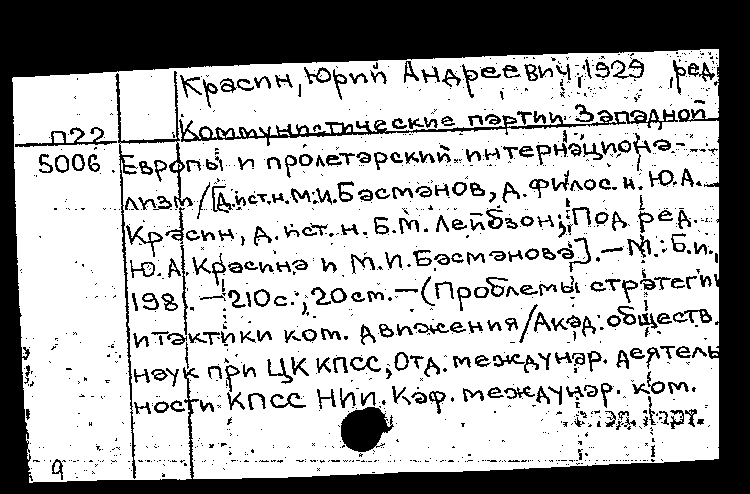 Красин, Юрий Андреевич, 1929 ,ред.
П22 Коммунистические партии Западной
5006 Европы и пролетарский интернациона-
лизм/[Д.ист.н.М.И.Басманов, д.филос.н. Ю.А.
Красин, д.ист.н. Б.М. Лейбзон; Под ред.
Ю.А.Красина и М.И.Басманова].—М.:Б.и.,
198 .—210с.; 20см.—(Проблемы стратегии
и тактики ком. движения/Акад.обществ.
наук при ЦК КПСС, Отд. междунар. деятель
ности КПСС НИИ. Каф. междунар. ком.
след. карт.
9